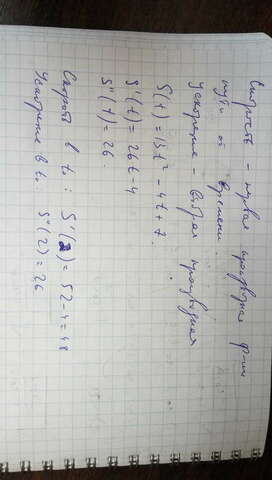 Скорость - первая производная ф-ии
пути от времени.
Ускорение - вторая производная
S(t) = 13t² - 4t + 7.
S'(t) = 26t - 4
S''(t) = 26.
Скорость в t₀: S'(2) = 52 - 4 = 48
Ускорение в t₀ S''(2) = 26